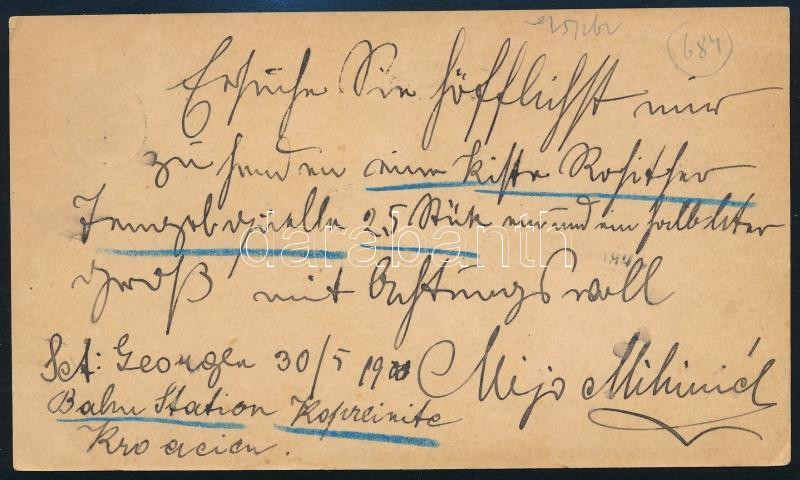 684
Ersuche Sie höfflichst mir
zu senden eine Kiste Rohitscher
Tempelquelle 25 Stük ein und ein halb Liter
groß mit Achtungsvoll
Sct: Georgen 30/5 1900 Mijo Mikinić
Bahn Station Kopreinitc
Kroacien.
darabanth